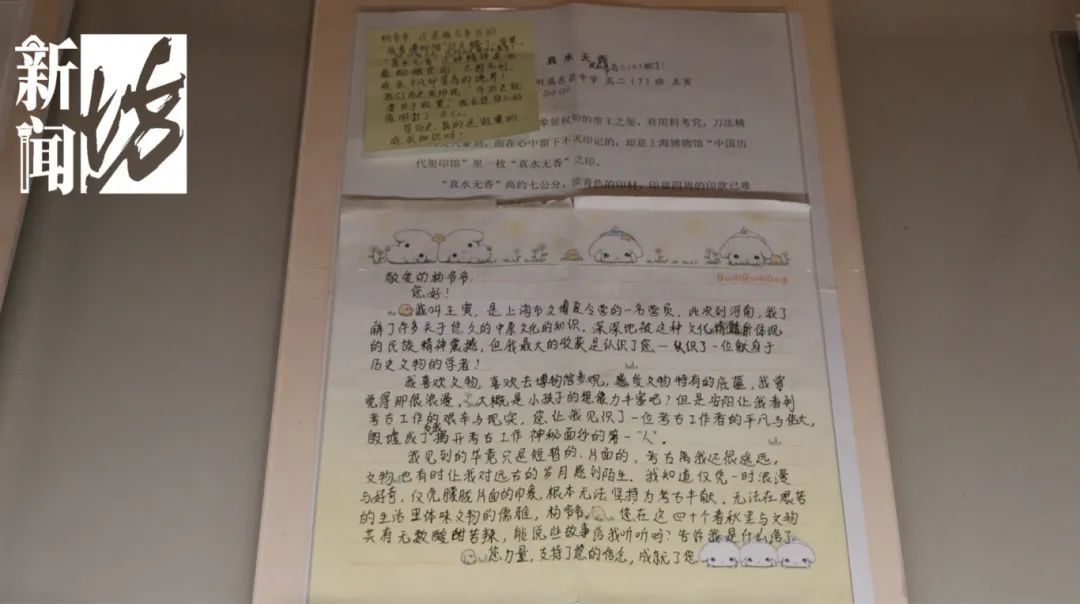 新闻坊
真水无香
附属东昌中学 高二(7)班 王寅
掌握权柄的帝王之玺，有用料考究，刀法精
而在心中留下不灭印记的，却是上海博物馆“中国历
代玺印馆”里一枚“真水无香”之印。
“真水无香”高约七公分，淡青色的印材，印章四周的印款已难
BudiBudiDog
敬爱的杨爷爷：
您好！
我叫王寅，是上海市文博夏令营的一名营员，此次到河南，我了
解了许多关于悠久的中原文化的知识，深深地被这种文化精髓所体现
的民族精神震撼，但我最大的收获是认识了您—认识了一位献身于
历史文物的学者！
我喜欢文物，喜欢去博物馆参观，感受文物特有的底蕴，我曾
觉得那很浪漫，大概是小孩子的想象力丰富吧？但是安阳让我看到
考古工作的艰辛与现实，您让我见识了一位考古工作者的平凡与伟大，
殷墟成了为我揭开考古工作神秘面纱的第一“人”。
我见到的毕竟只是短暂的、片面的，考古离我还很遥远，
文物也有时让我对远古的岁月感到陌生。我知道仅凭一时浪漫
与好奇，仅凭朦胧片面的印象，根本无法坚持为考古奉献，无法在艰苦
的生活里体味文物的儒雅，杨爷爷，您在这四十个春秋里与文物
共有无数酸甜苦辣，能说些故事给我听听吗？告诉我是什么给了
您力量，支持了您的信念，成就了您